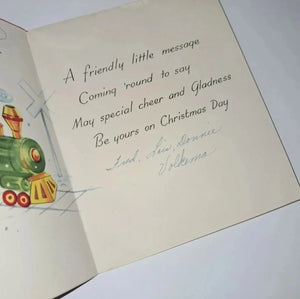 A friendly little message
Coming 'round to say
May special cheer and Gladness
Be yours on Christmas Day
Fred, Lois, Donnie
Volkema